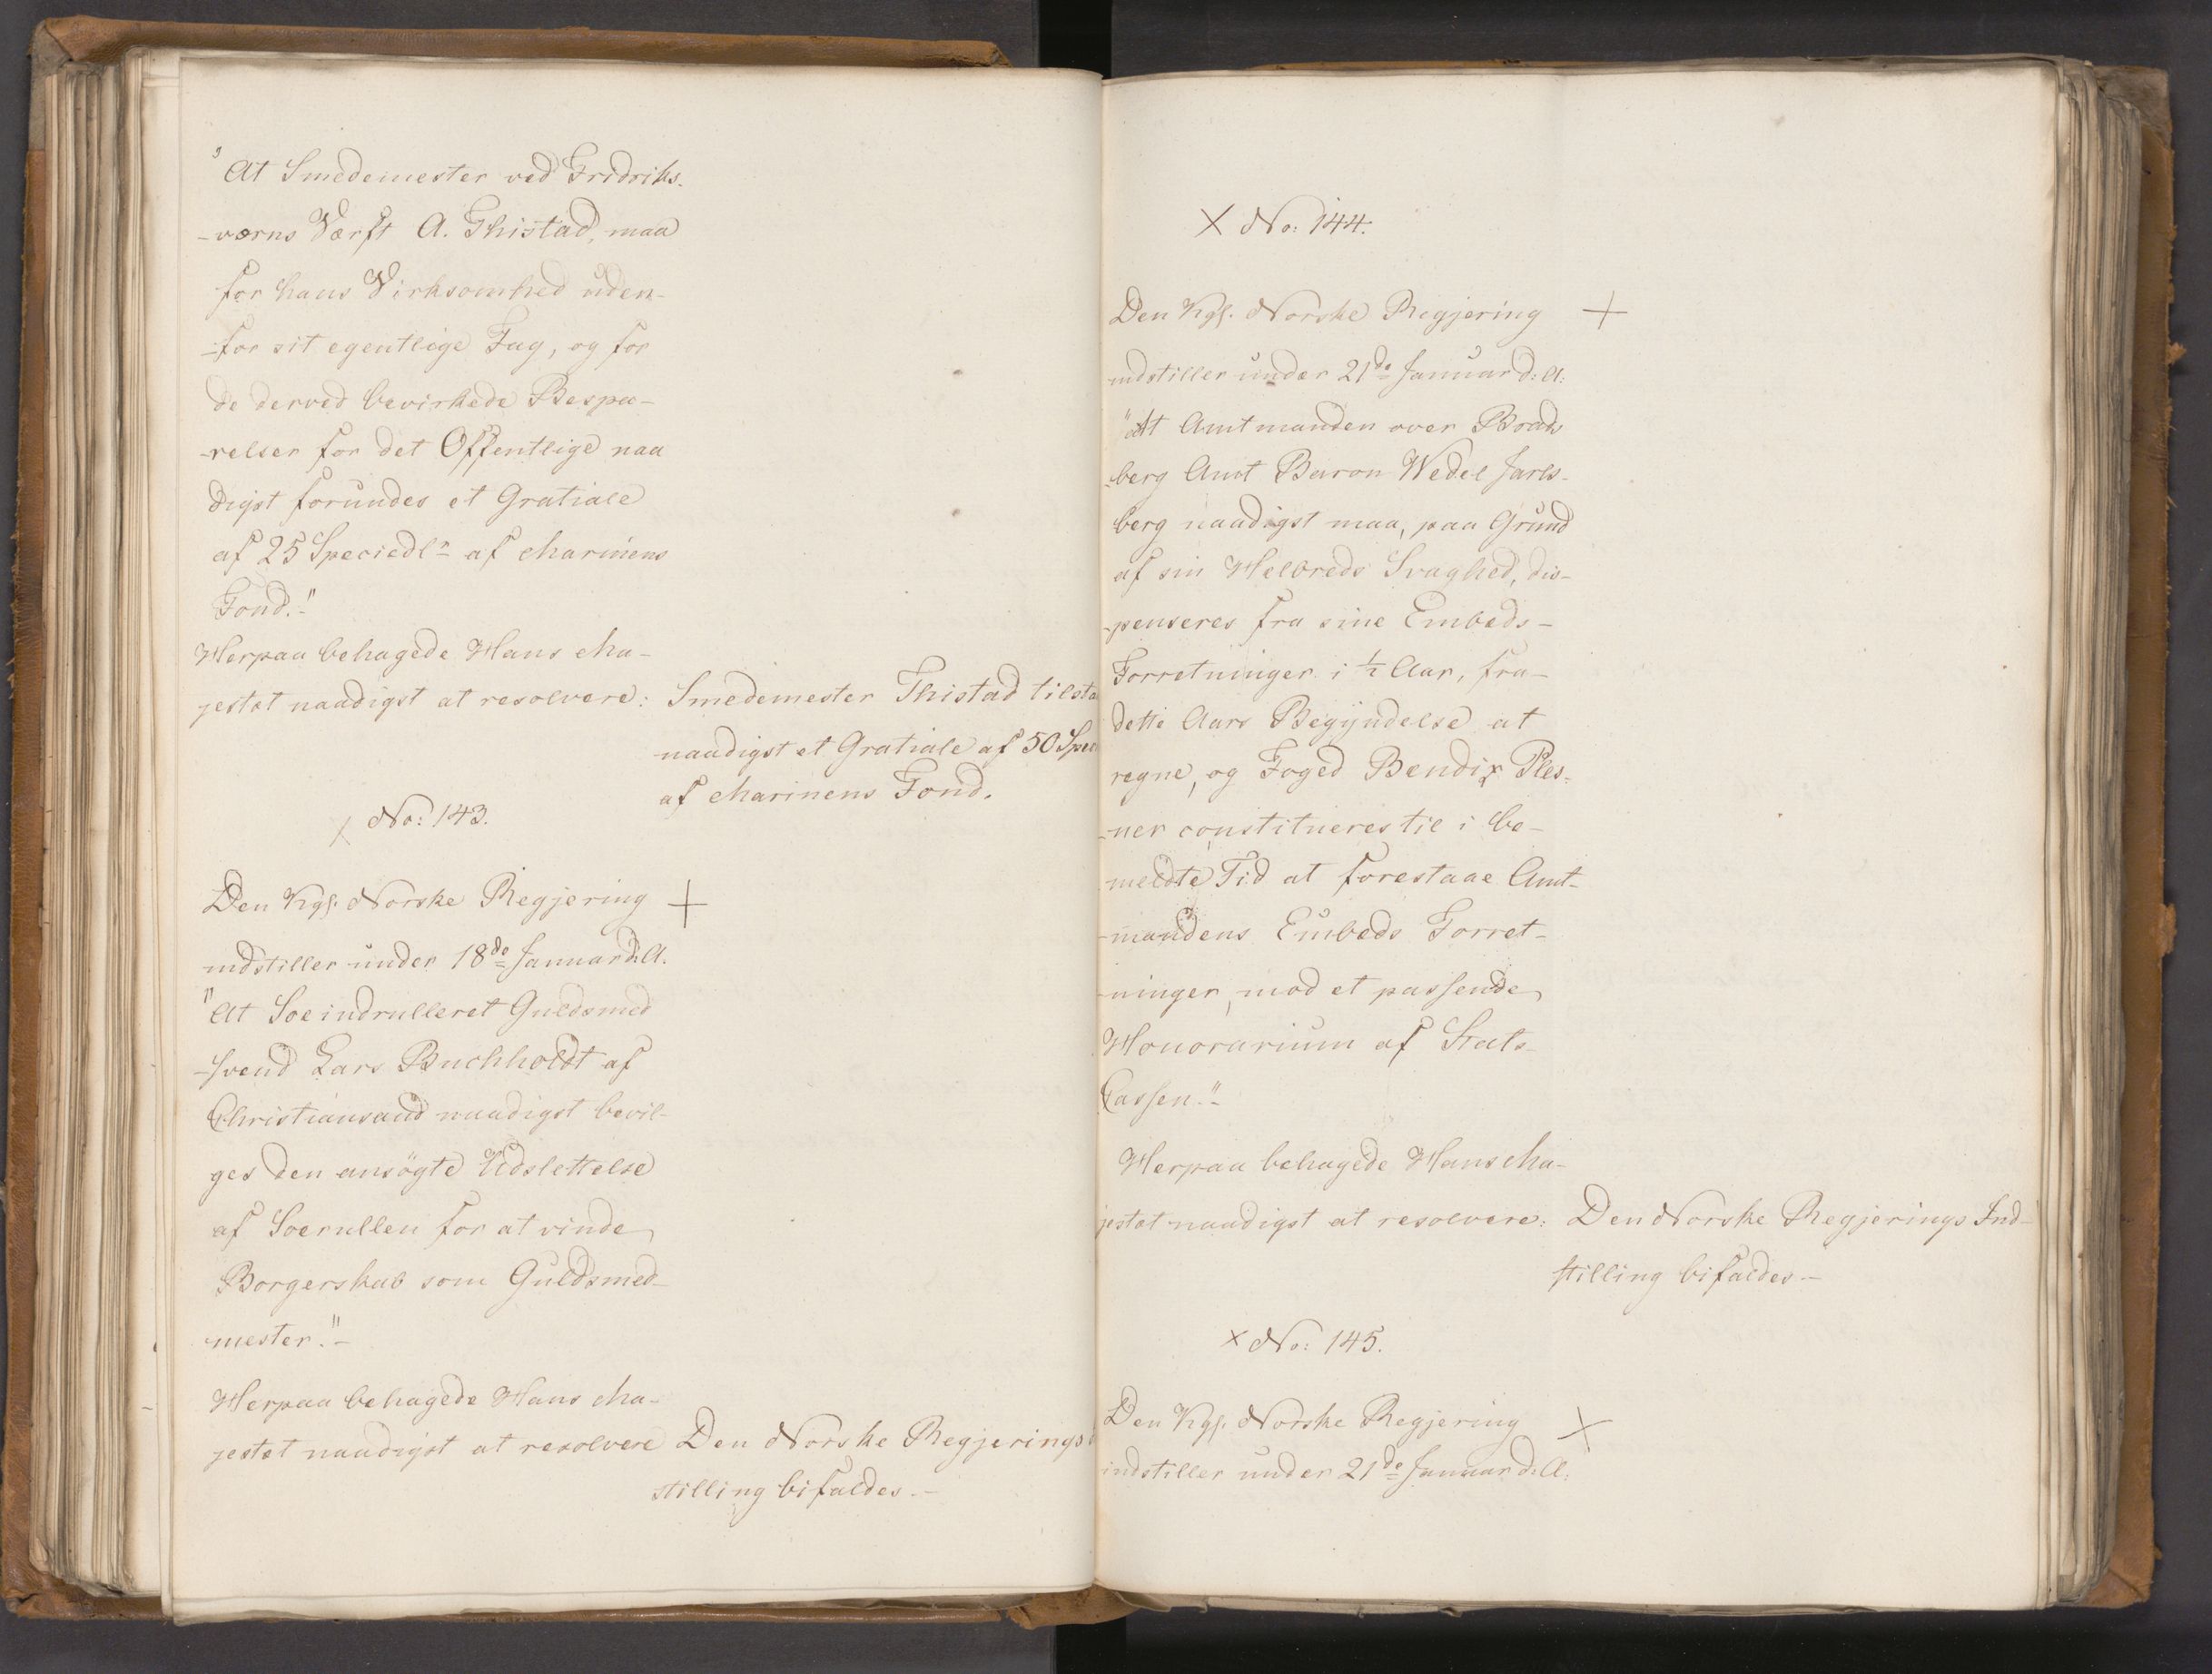 "At Smedemester ved Fridriks-
-værns Værft A. Thistad, maa
for hans Virksomhed uden-
-for sit egentlige Fag, og for
de derved bevirkede Bespa-
-relser for det Offentlige naa
digst forundes et Gratiale
af 25 Speciedlr af Marinens
Fond."
Herpaa behagede Hans Ma-
jestæt naadigst at resolvere: Smedemester Thistad tilsta
naadigst et Gratiale af 50 Spec
af Marinens Fond.
No: 143.
Den Kgl. Norske Regjering
indstiller under 18de Januar d: A.
"At Søeindrulleret Guldsmed
-svend Lars Buchholdt af
Christiansand naadigst bevil-
ges den ansögte Udslettelse
af Söerullen for at vinde
Borgerskab som Guldsmed-
mester."-
Herpaa behagede Hans Ma-
jestæt naadigst at resolvere Den Norske Regjerings
stilling bifaldes.-
No: 144.
Den Kgl. Norske Regjering
indstiller under 21de Januar d: A:
"at Amtmanden over Brads
-berg Amt Baron Wedel Jarls-
berg naadigst maa, paa Grund
af sin Helbreds Svaghed, dis-
-penseres fra sine Embeds-
Forretninger i ½ Aar, fra
dette Aars Begyndelse at
regne, og Foged Bendix Ples-
-ner constitueres til i be-
meldte Tid at forestaae Amt-
-mandens Embeds Forret-
-ninger, mod et passende
Honorarium af Stats-
Cassen."-
Herpaa behagede Hans Ma-
jestæt naadigst at resolvere: Den Norske Regjerings Ind-
stilling bifaldes.-
No: 145.
Den Kgl. Norske Regjering
indstiller under 21de Januar d: A: